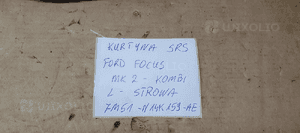 KURTYNA SRS
FORD FOCUS
MK2 - KOMBI
L - STRONA
7M51-N14K159-AE